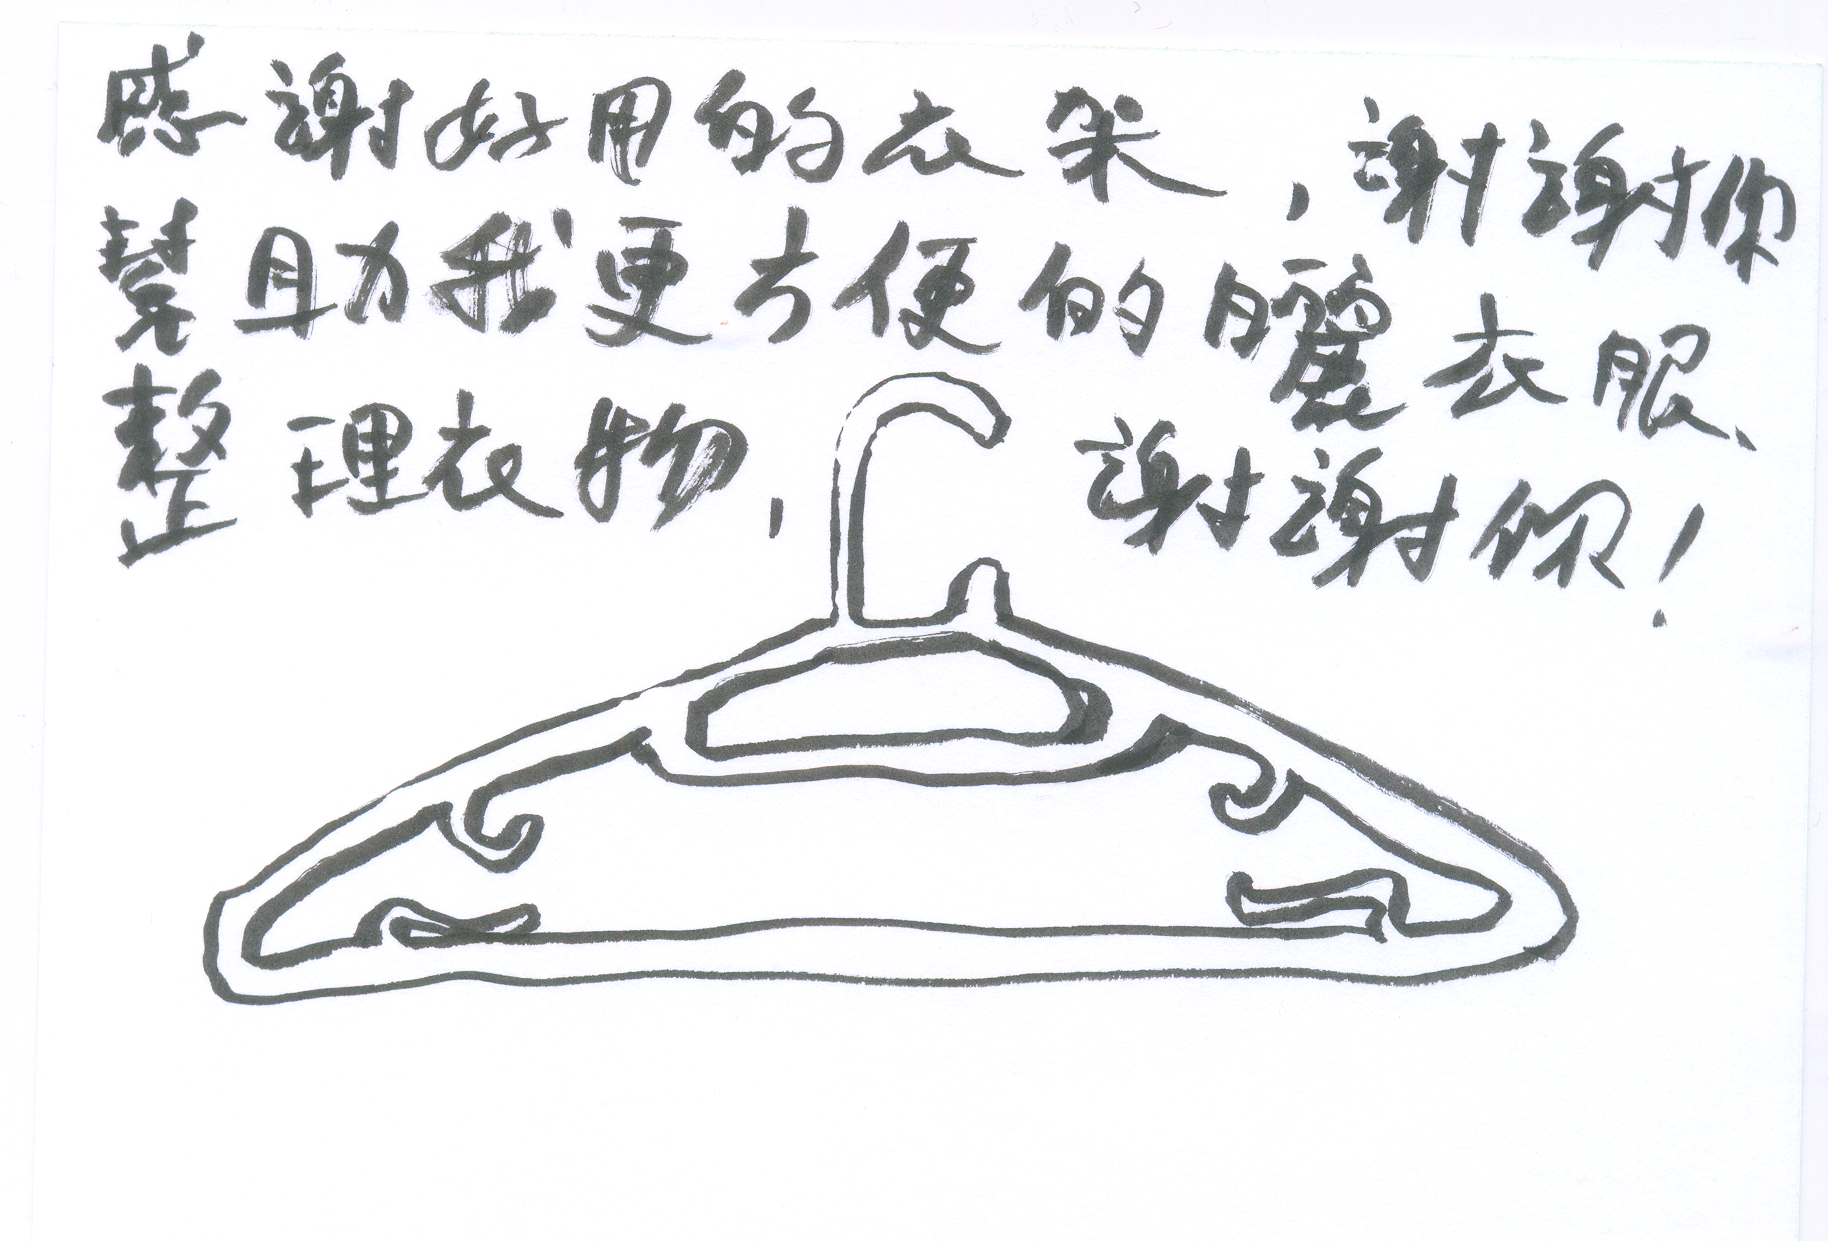 感謝好用的衣架，謝謝你
幫助我更方便的曬衣服、
整理衣物，謝謝你！